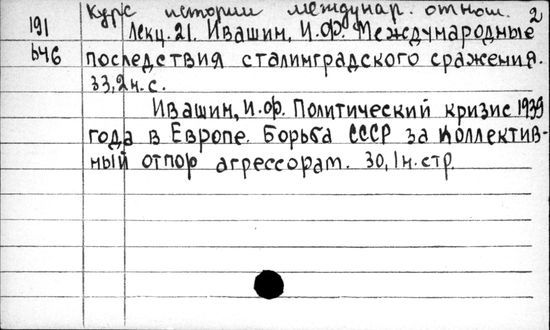 Курс истории междунар. отнош. 2
191 Лекц. 21. Ивашин, И.Ф. Международные
б46 последствия сталинградского сражения.
33,2 н.с.
Ивашин, И.Ф. Политический кризис 1939
года в Европе. Борьба СССР за коллектив-
ный отпор агрессорам. 30,1 н.стр.